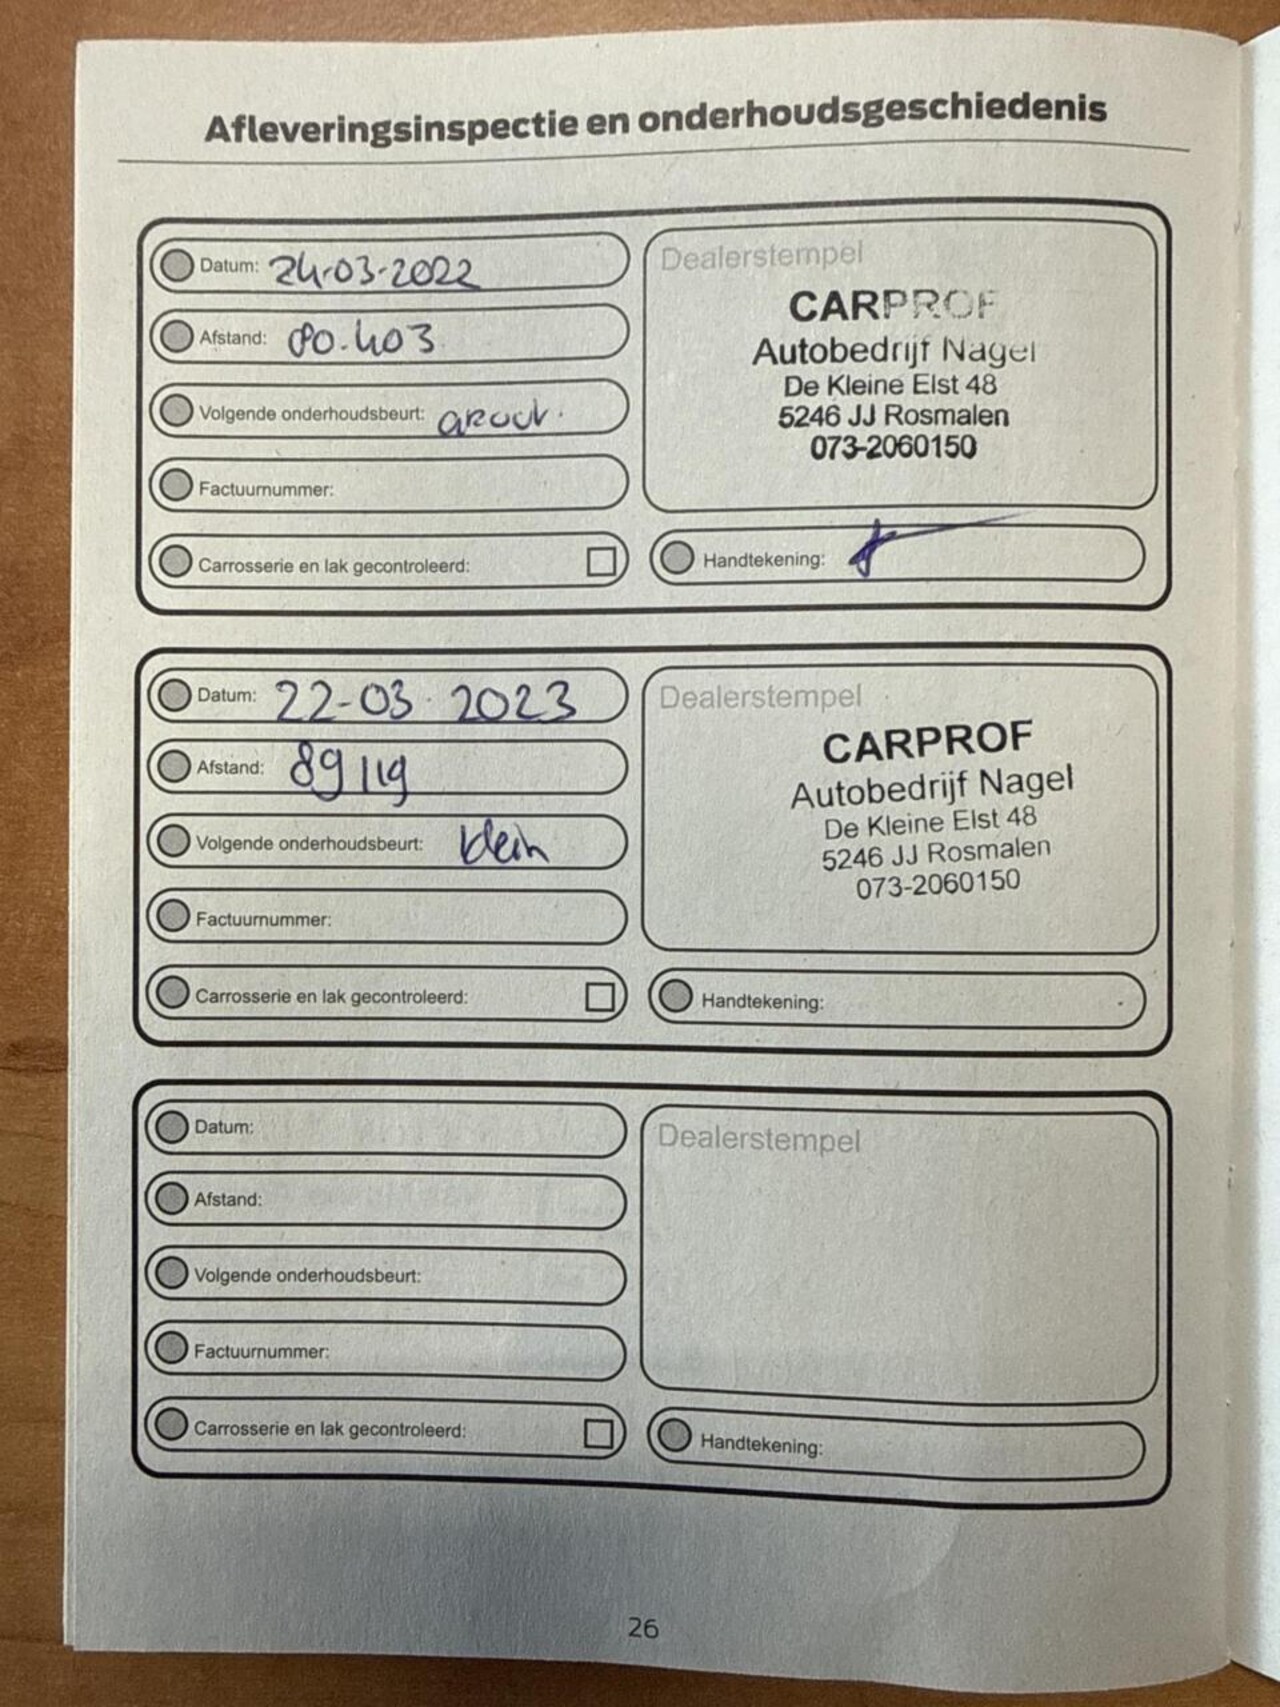 Afleveringsinspectie en onderhoudsgeschiedenis
Datum: 24-03-2022
Afstand: 80.403
Volgende onderhoudsbeurt: groot.
Factuurnummer:
Carrosserie en lak gecontroleerd:
Dealerstempel
CARPROF
Autobedrijf Nagel
De Kleine Elst 48
5246 JJ Rosmalen
073-2060150
Handtekening:
Datum: 22-03-2023
Afstand: 89119
Volgende onderhoudsbeurt: klein
Factuurnummer:
Carrosserie en lak gecontroleerd:
Dealerstempel
CARPROF
Autobedrijf Nagel
De Kleine Elst 48
5246 JJ Rosmalen
073-2060150
Handtekening:
Datum:
Afstand:
Volgende onderhoudsbeurt:
Factuurnummer:
Carrosserie en lak gecontroleerd:
Dealerstempel
Handtekening:
26